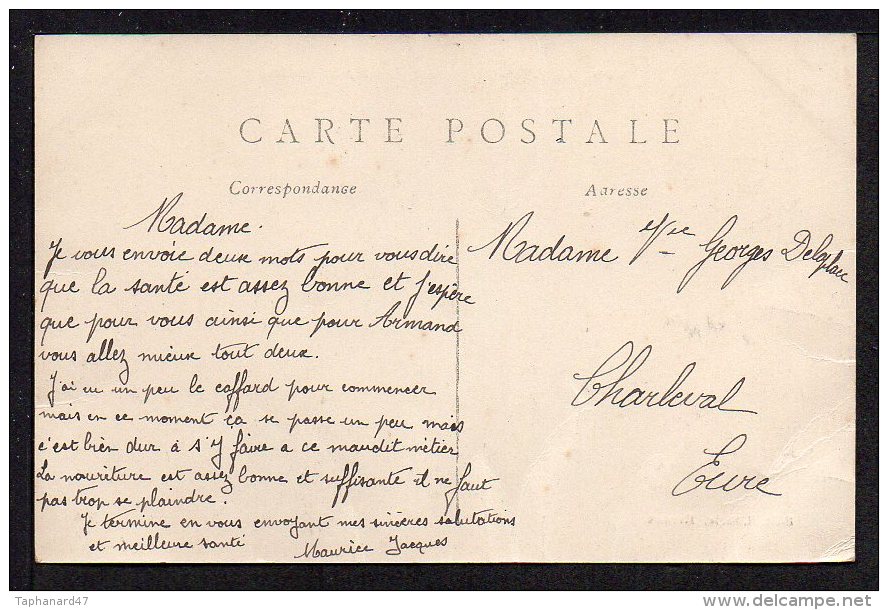 CARTE POSTALE
Correspondance
Adresse
Madame.
Je vous envoie deux mots pour vous dire
que la santé est assez bonne et j'espère
que pour vous ainsi que pour Armand
vous allez mieux tout deux.
J'ai eu un peu le caffard pour commencer
mais en ce moment ça se passe un peu mais
c'est bien dur à s'y faire a ce maudit métier
La nouriture est assez bonne et suffisante il ne faut
pas trop se plaindre.
Je termine en vous envoyant mes sincères salutations
et meilleure santé
Maurice Jacques
Madame Vve Georges
Charleval
Eure
Taphanard47
delcampe.net